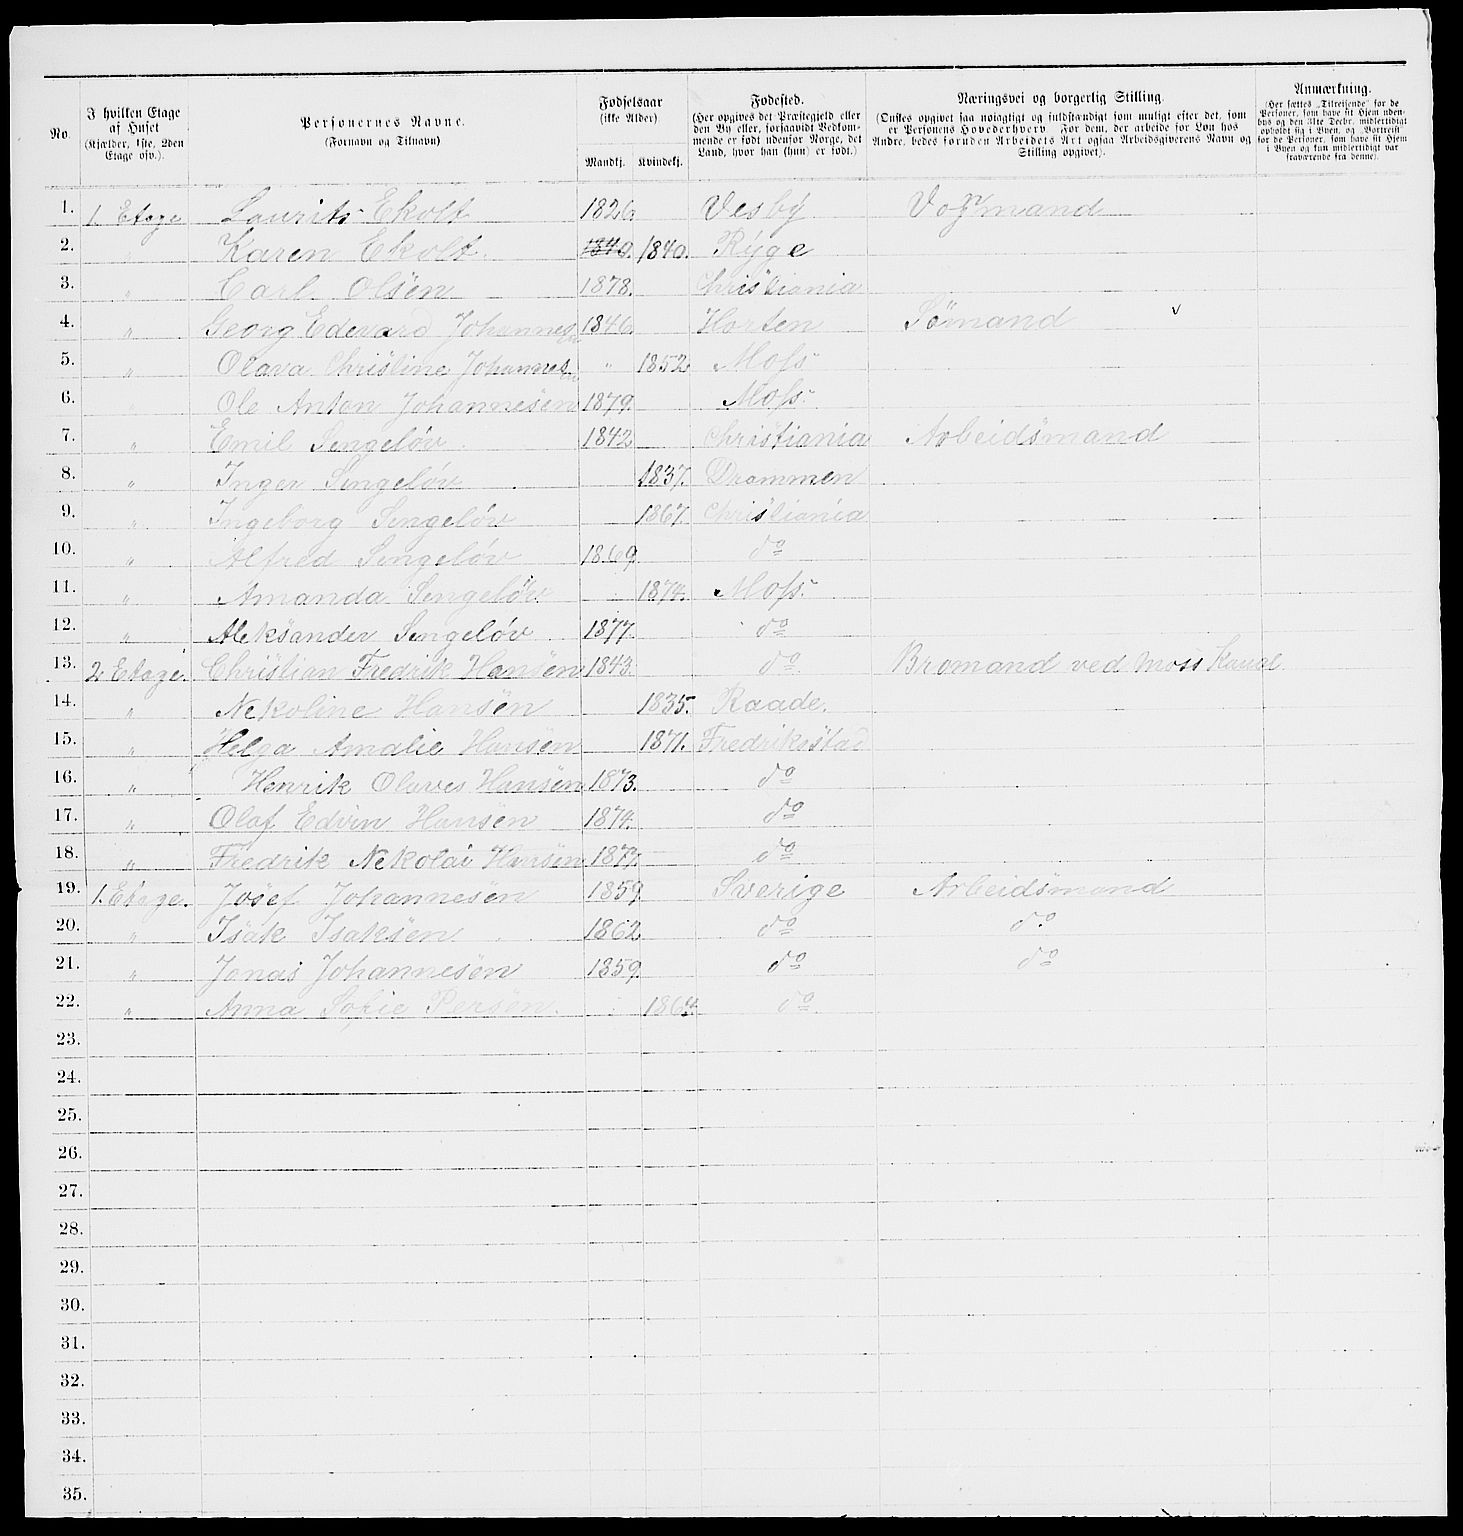 No.
I hvilken Etage af Huset (Kjælder, 1ste, 2den Etage osv.).
Personernes Navne. (Fornavn og Tilnavn)
Fødselsaar (ikke Alder)
Mandkj. Kvindekj.
Fødested. (Her opgives det Præstegjeld eller den By eller, forsaavidt Vedkommende er født udenfor Norge, det Land, hvor han (hun) er født.)
Næringsvei og borgerlig Stilling. (Ønskes opgivet saa nøiagtigt og fuldstændigt som muligt efter det, som er Personens Hovederhverv. For dem, der arbeide for Løn hos Andre, bedes foruden Arbeidets Art ogsaa Arbeidsgiverens Navn og Stilling opgivet).
Anmærkning. (Her sættes „Tilreisende“ for de Personer, som have sit Hjem udenbys og den 31te Decbr. midlertidigt opholdt sig i Byen, og „Bortreist“ for de Personer, som have sit Hjem i Byen og kun midlertidigt var fraværende fra denne).
1. 1. Etage Laurits Ekolt 1826. Vesby Vognmand
2. „ Karen Ekolt. 1840. 1840. Ryge
3. „ Carl Olsen 1878. Christiania
4. „ Georg Edevard Johannesen 1846. Horten Sømand v
5. „ Olava Christine Johannesen „ 1852 Moss
6. „ Ole Anton Johannesen 1879. Moss.
7. „ Emil Sengeløv. 1842 Christiania Arbeidsmand
8. „ Inger Sengeløv 1837. Drammen
9. „ Ingeborg Sengeløv 1867. Christiania
10. „ Alfred Sengeløv 1869. do
11. „ Amanda Sengeløv 1874. Moss.
12. „ Aleksander Sengeløv. 1877. do
13. 2 Etage. Christian Fredrik Hansen 1843. do Bromand ved Moss Kanal.
14. „ Nekoline Hansen 1835. Raade.
15. „ Helga Amalie Hansen 1871. Fredriksstad
16. „ Henrik Olaves Hansen 1873. do
17. „ Olaf Edvin Hansen 1874. do
18. „ Fredrik Nekolai Hansen 1877. do
19. 1. Etage. Josef Johannesen 1859. Sverige Arbeidsmand
20. „ Isak Isaksen 1862 do do
21. „ Jonas Johannesen 1859. do do
22. „ Anna Sofie Person. 1864 do.
23.
24.
25.
26.
27.
28.
29.
30.
31.
32.
33.
34.
35.